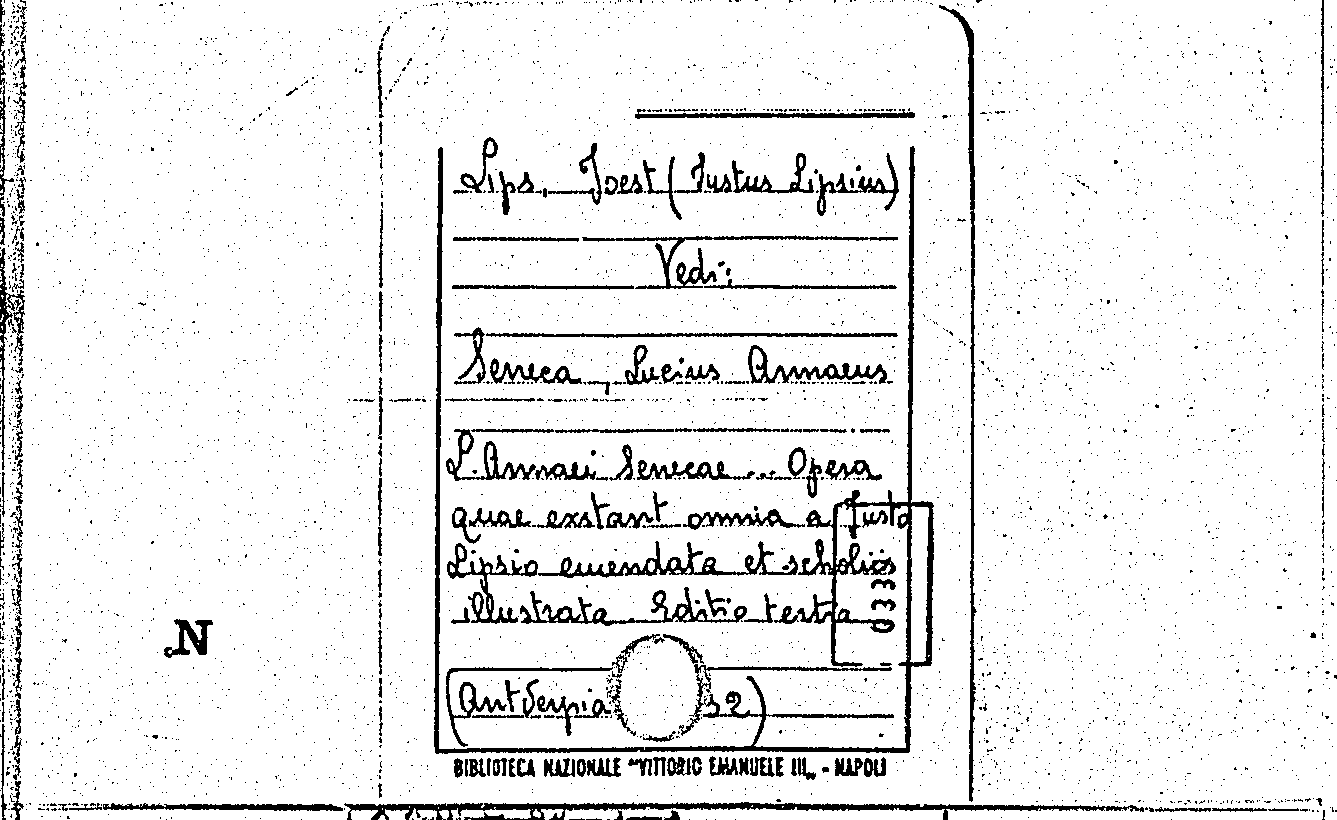 Lips, Joest (Justus Lipsius)
Vedi:
Seneca, Lucius Annaeus
L. Annaei Senecae ... Opera
quae exstant omnia a Justo
Lipsio emendata et scholiis
illustrata. Editio tertia
(Antverpia 52)
033
N
BIBLIOTECA NAZIONALE "VITTORIO EMANUELE III„ - NAPOLI